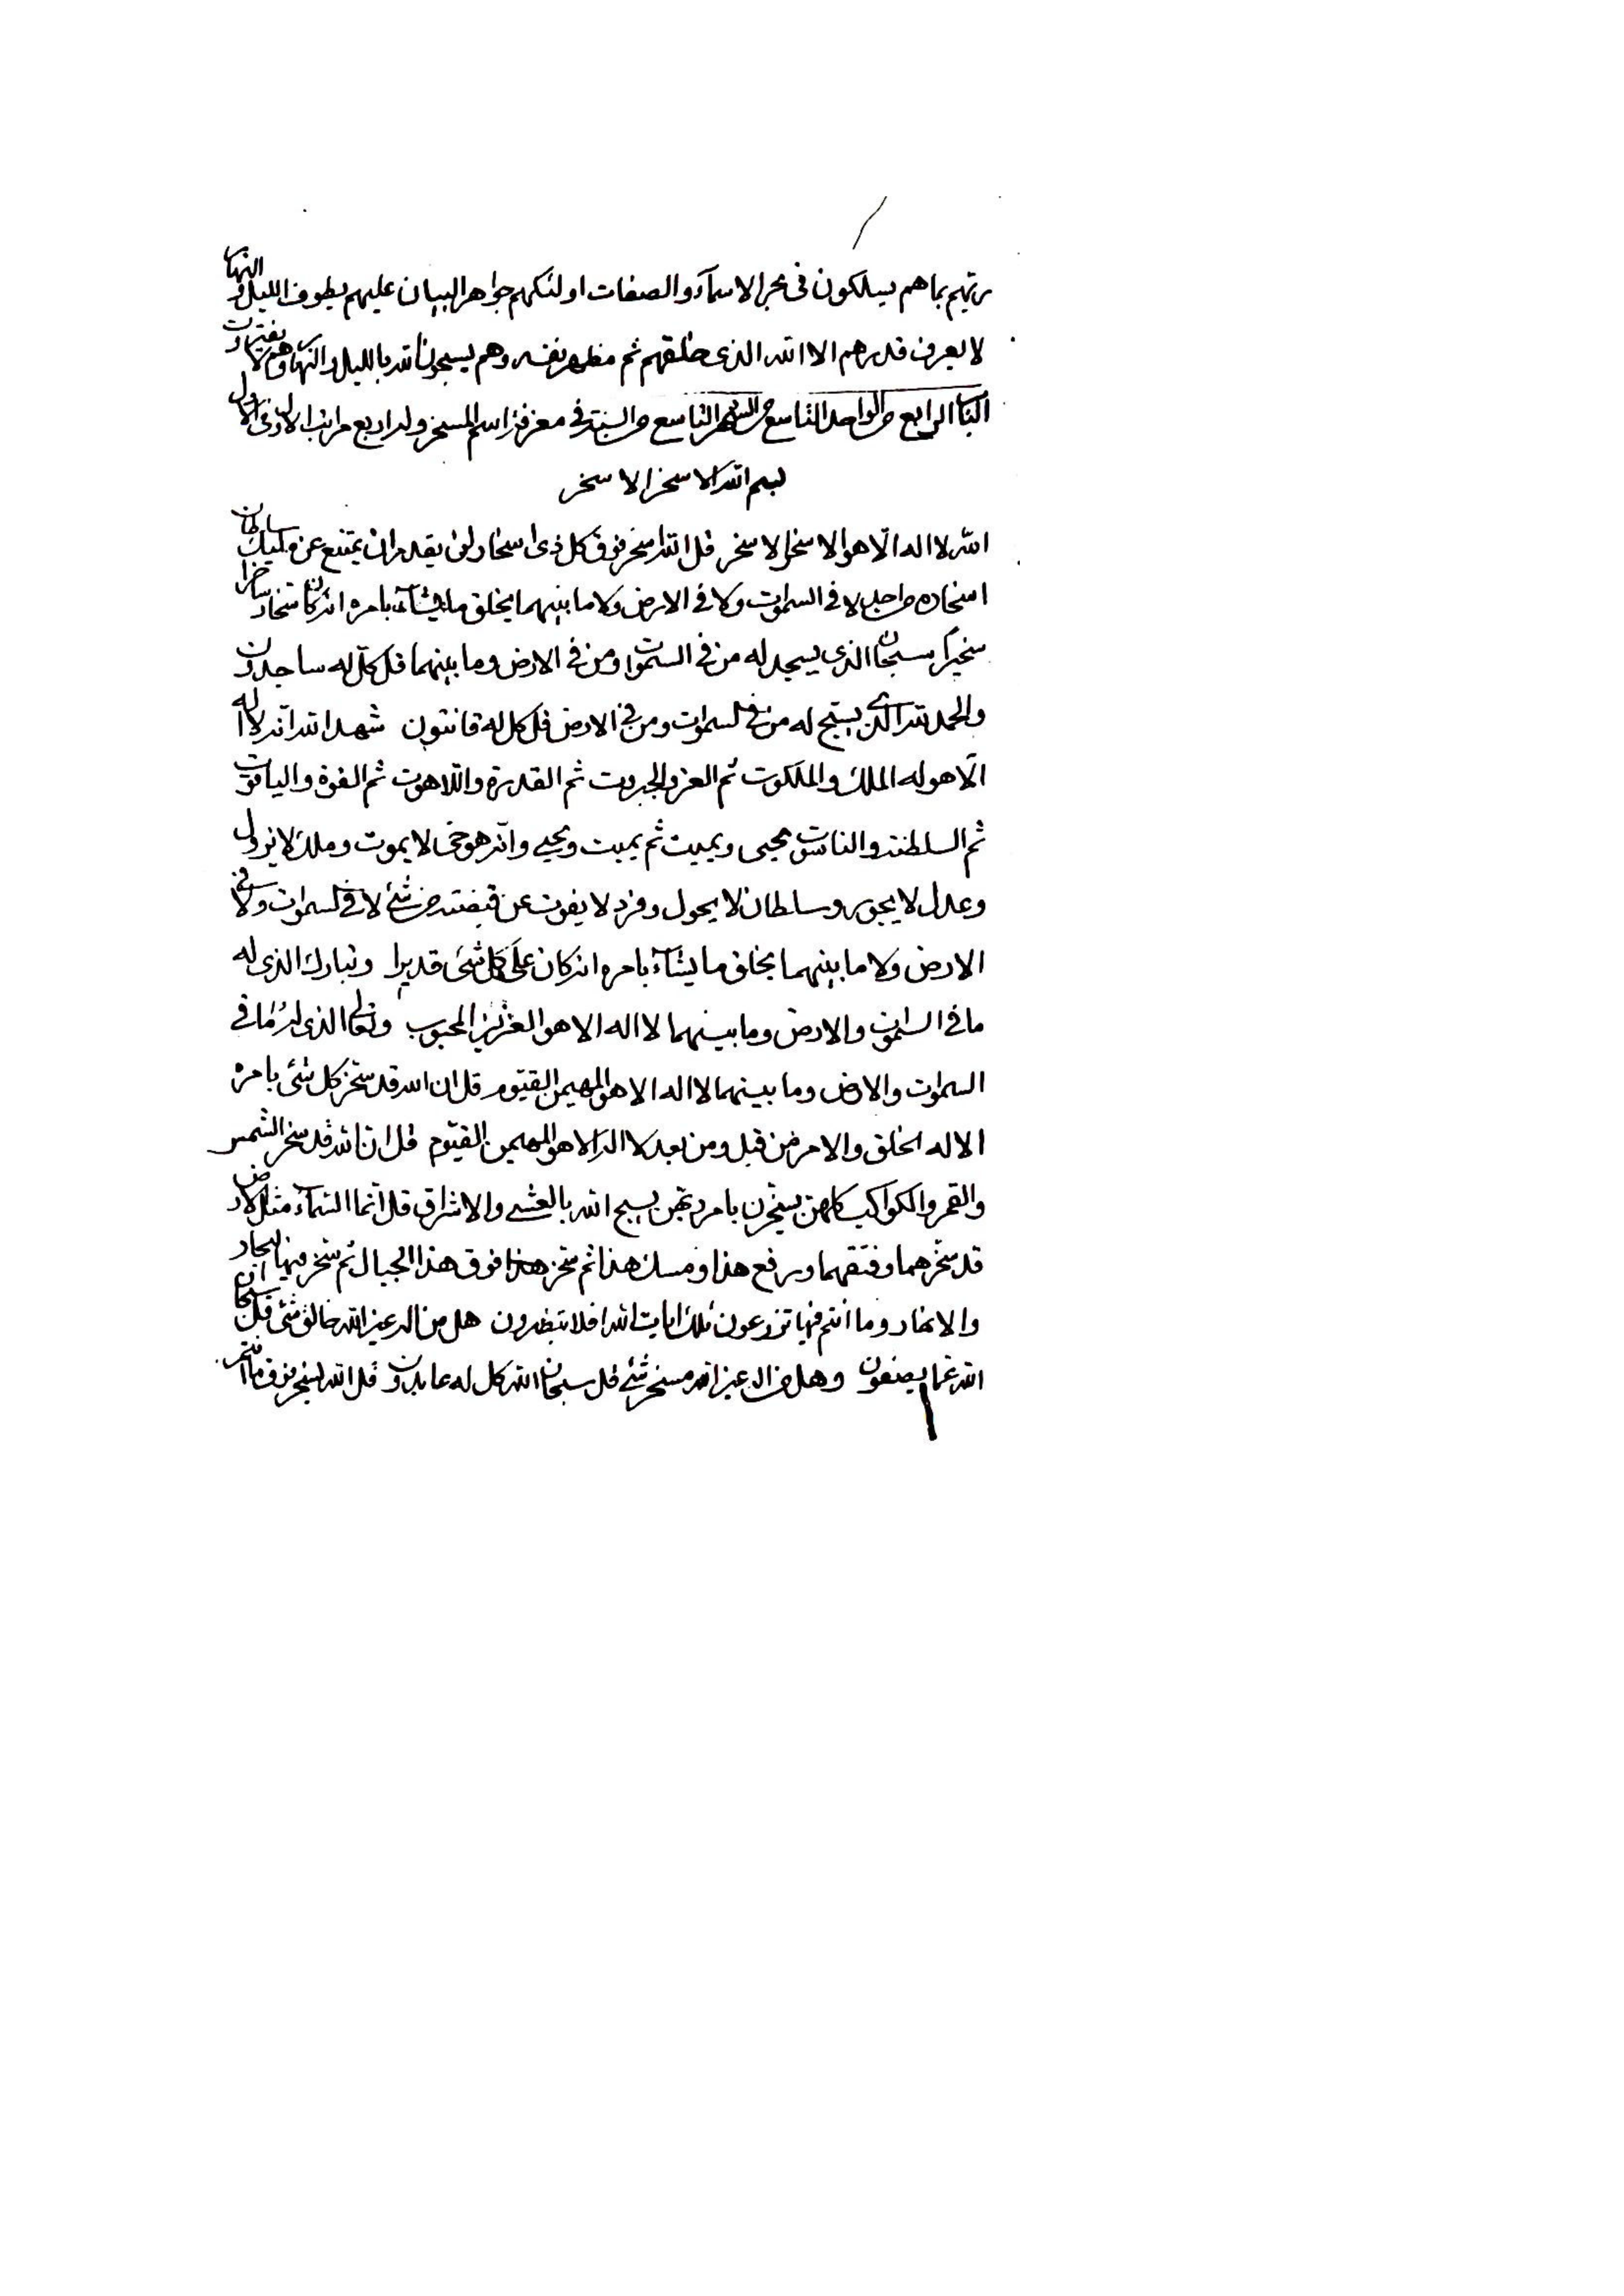 ربهم بما هم يسلكون فى بحر الاسمآء والصفات اولئك هم جواهر البيان عليهم يطوف الليل والنهار
لا يعرف قدرهم الا الله الذى خلقهم ثم مظهر نفسه وهم يسبحون الله بالليل والنهار وهم لا يفترون
الباب الرابع من الواحد التاسع من الشهر التاسع من السنة فى معرفة اسم المسخر وله اربع مراتب الاول فى الاول
بسم الله الاسخر الاسخر
الله لا اله الا هو الاسخر الاسخر قل الله اسخر فوق كل ذى اسخار لن يقدر ان يمتنع عن مليك سلطان
اسخاره من احد لا فى السموات ولا فى الارض ولا ما بينهما يخلق ما يشآء بامره انه كان سخارا ساخرا
سخيرا سبحان الذى يسجد له من فى السموات ومن فى الارض وما بينهما قل كل له ساجدون
والحمد لله الذى يسبح له من فى السموات ومن فى الارض قل كل له قانتون شهد الله انه لا اله
الا هو له الملك والملكوت ثم العز والجبروت ثم القدرة واللاهوت ثم القوة والياقوت
ثم السلطنة والناسوت يحيى ويميت ثم يميت ويحيى وانه هو حى لا يموت وملك لا يزول
وعدل لا يجور وسلطان لا يحول وفرد لا يفوت عن قبضته من شئ لا فى السموات ولا فى
الارض ولا ما بينهما يخلق ما يشآء بامره انه كان على كل شئ قديرا وتبارك الذى له
ما فى السموات والارض وما بينهما لا اله الا هو العزيز المحبوب وتعالى الذى له ما فى
السموات والارض وما بينهما لا اله الا هو المهيمن القيوم قل ان الله قد سخر كل شئ بامره
الا له الخلق والامر من قبل ومن بعد لا اله الا هو المهيمن القيوم قل ان الله قد سخر الشمس
والقمر والكواكب كلهن يسخرن بامر ربهن يسبح الله بالعشى والاشراق قل انما السمآء مثل الارض
قد سخرهما وفتقهما ورفع هذا ومسك هذا ثم سخر هذا فوق هذا الجبال ثم سخر فيها البحار
والانهار وما انتم فيها تزرعون تلك ايات الله افلا تنظرون هل من اله غير الله خالق شئ قل سبحان
الله عما يصفون وهل من اله غير الله مسخر شئ قل سبحان الله كل له عابدون قل الله ليسخر فوق ما انتم